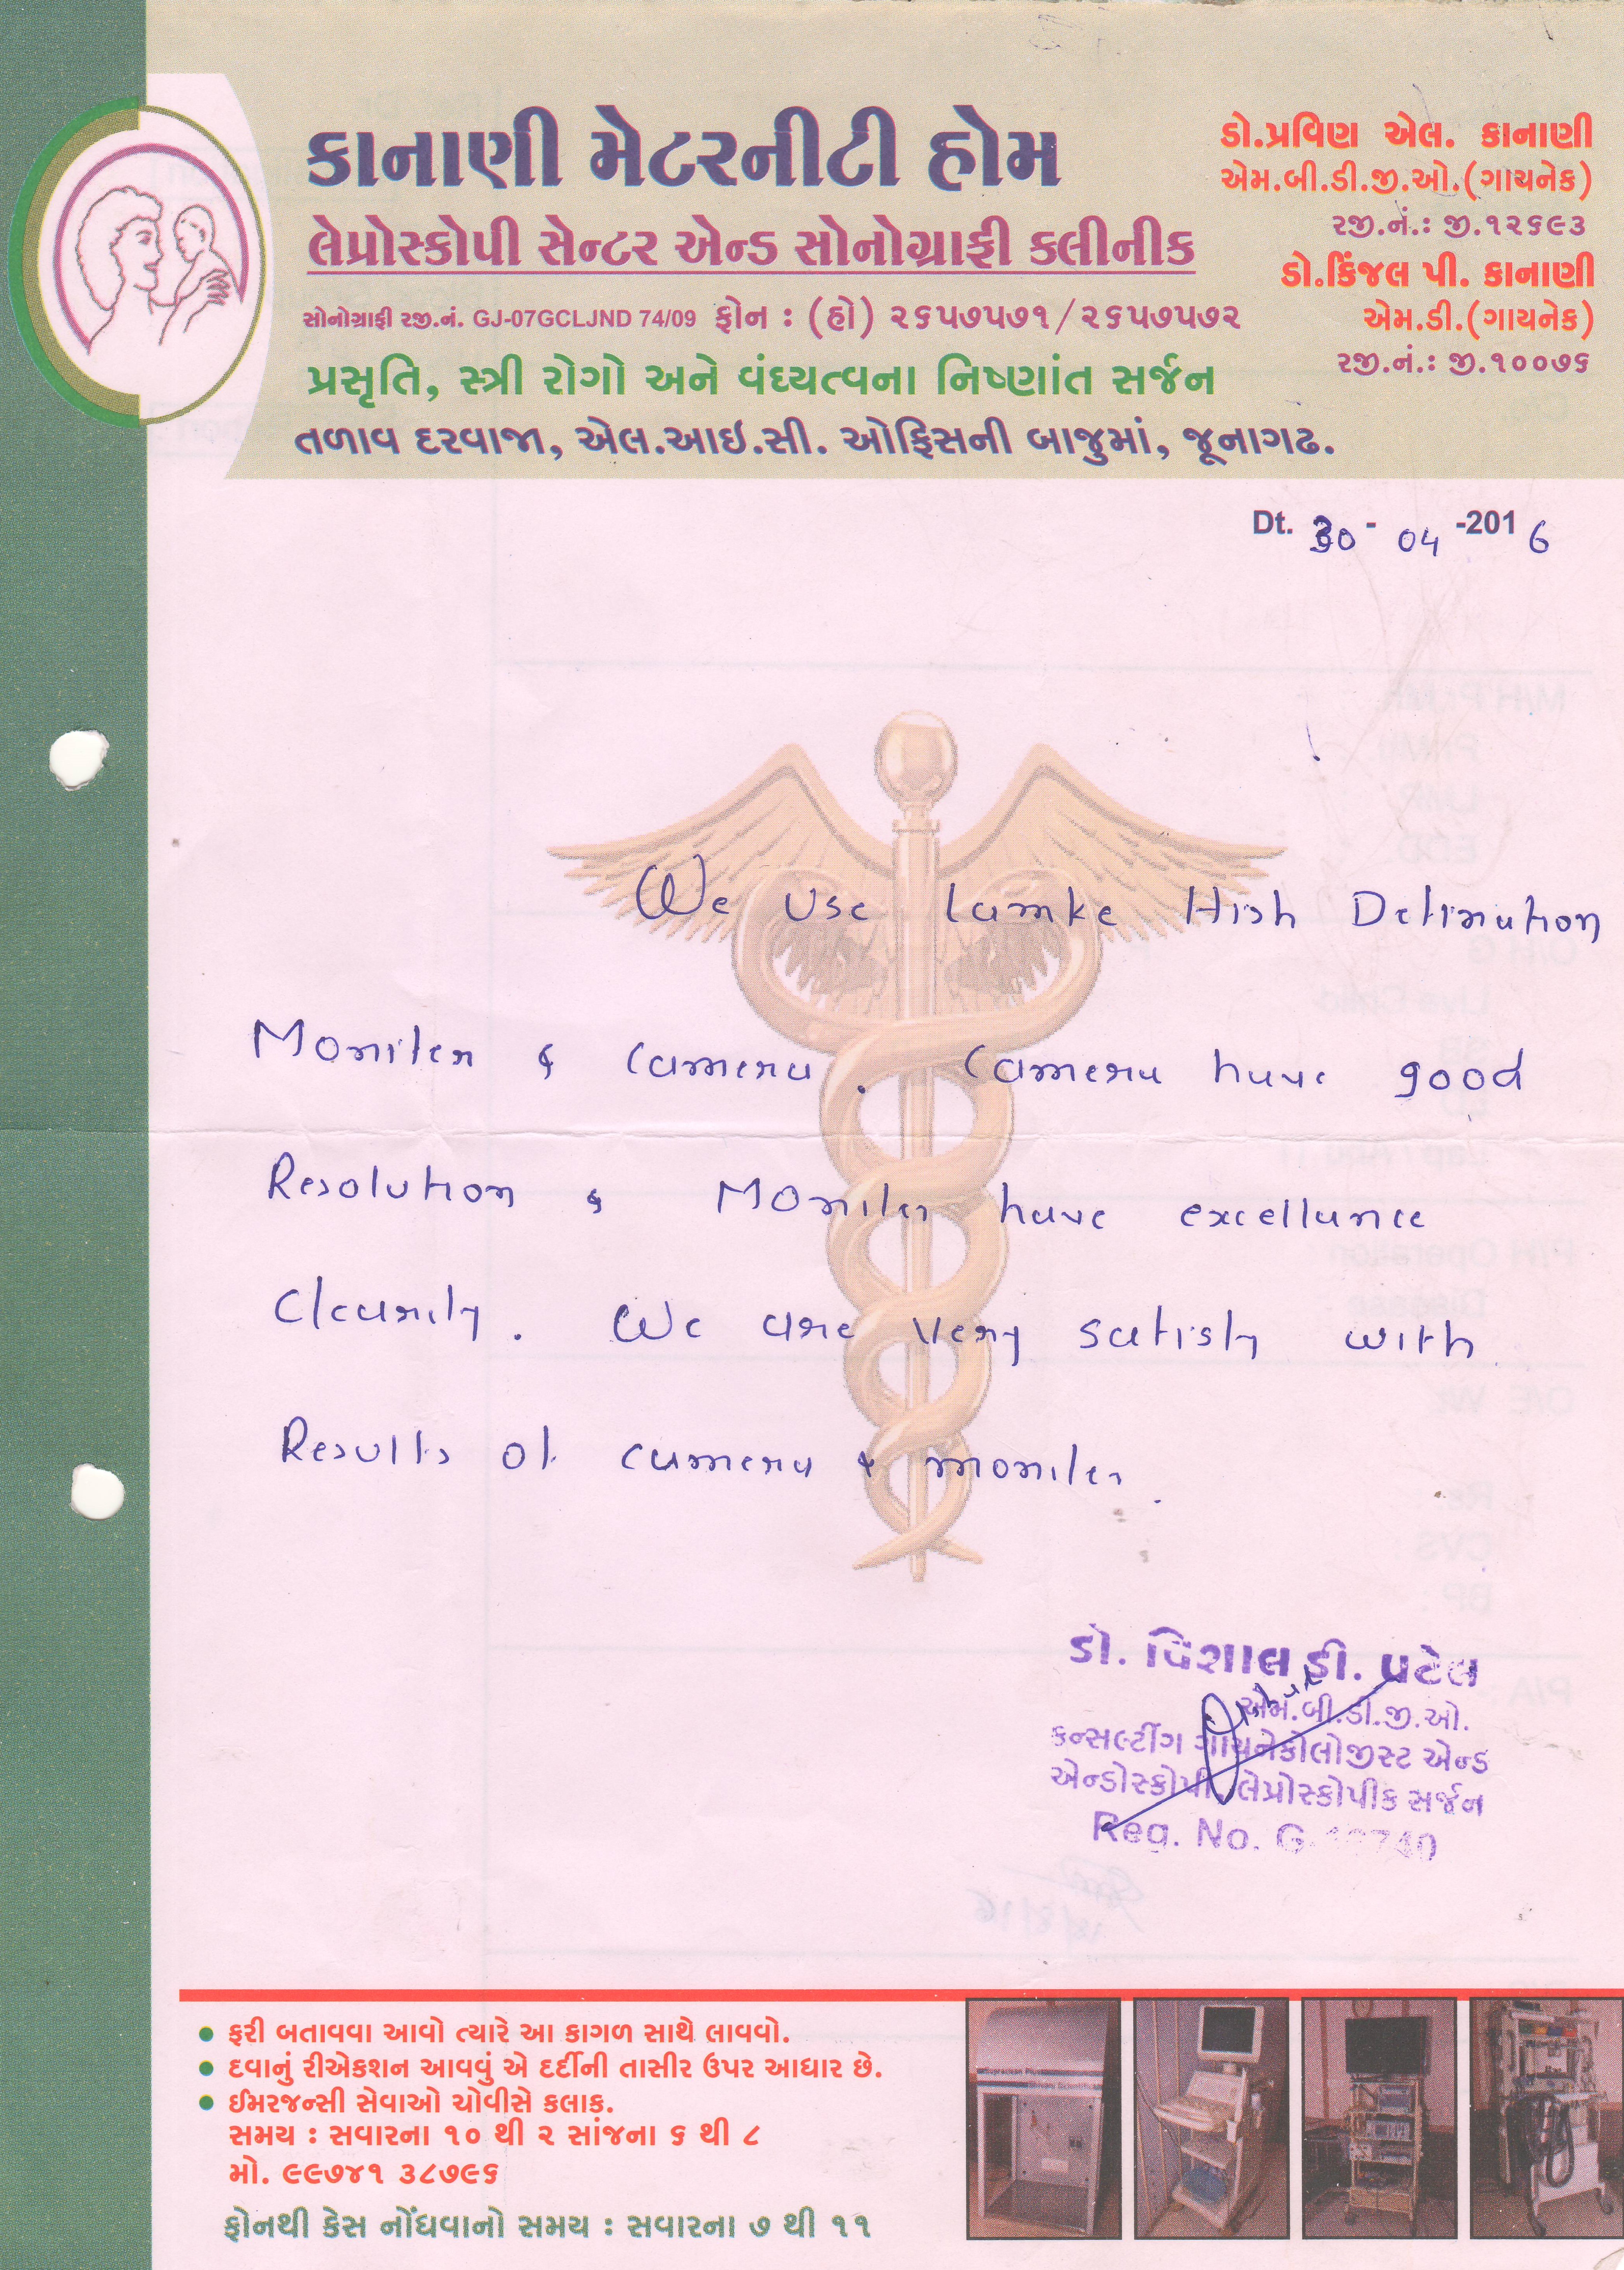 કાનાણી મેટરનીટી હોમ
લેપ્રોસ્કોપી સેન્ટર એન્ડ સોનોગ્રાફી કલીનીક
સોનોગ્રાફી રજી.નં. GJ-07GCLJND 74/09 ફોન : (હો) ૨૬૫૭૫૭૧/૨૬૫૭૫૭૨
પ્રસૃતિ, સ્ત્રી રોગો અને વંધ્યત્વના નિષ્ણાંત સર્જન
તળાવ દરવાજા, એલ.આઇ.સી. ઓફિસની બાજુમાં, જૂનાગઢ.
ડો.પ્રવિણ એલ. કાનાણી
એમ.બી.ડી.જી.ઓ.(ગાયનેક)
રજી.નં.: જી.૧૨૬૯૩
ડો.કિંજલ પી. કાનાણી
એમ.ડી.(ગાયનેક)
રજી.નં.: જી.૧૦૦૭૬
Dt. 30 - 04 -2016
We Use Lamke High Defination
Moniter & camera. Camera have good
Resolution & Moniter have excellance
Clearity. We are very satisfy with
Results of camera & moniter.
ડો. વિશાલ ડી. પટેલ
એમ.બી.ડી.જી.ઓ.
કન્સલ્ટીંગ ગાયનેકોલોજીસ્ટ એન્ડ
એન્ડોસ્કોપી લેપ્રોસ્કોપીક સર્જન
Reg. No.
ફરી બતાવવા આવો ત્યારે આ કાગળ સાથે લાવવો.
દવાનું રીએકશન આવવું એ દર્દીની તાસીર ઉપર આધાર છે.
ઈમરજન્સી સેવાઓ ચોવીસે કલાક.
સમય : સવારના ૧૦ થી ૨ સાંજના ૬ થી ૮
મો. ૯૯૭૪૧ ૩૮૭૯૬
ફોનથી કેસ નોંધવાનો સમય : સવારના ૭ થી ૧૧